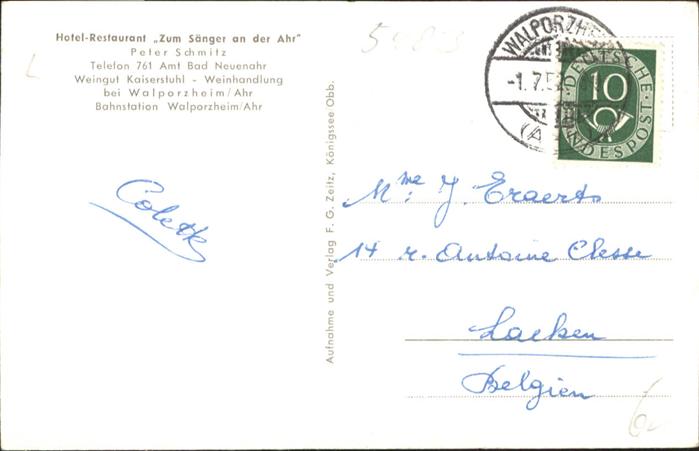 Hotel-Restaurant „Zum Sänger an der Ahr"
Peter Schmitz
Telefon 761 Amt Bad Neuenahr
Weingut Kaiserstuhl - Weinhandlung
bei Walporzheim/Ahr
Bahnstation Walporzheim/Ahr
Colette
Aufnahme und Verlag F. G. Zeitz, Königssee Obb.
WALPORZH
-1.7.5
(A
DEUTSCHE
10
BUNDESPOST
Mme J. Eraerts
14 r. Antoine Clesse
Laeken
Belgien